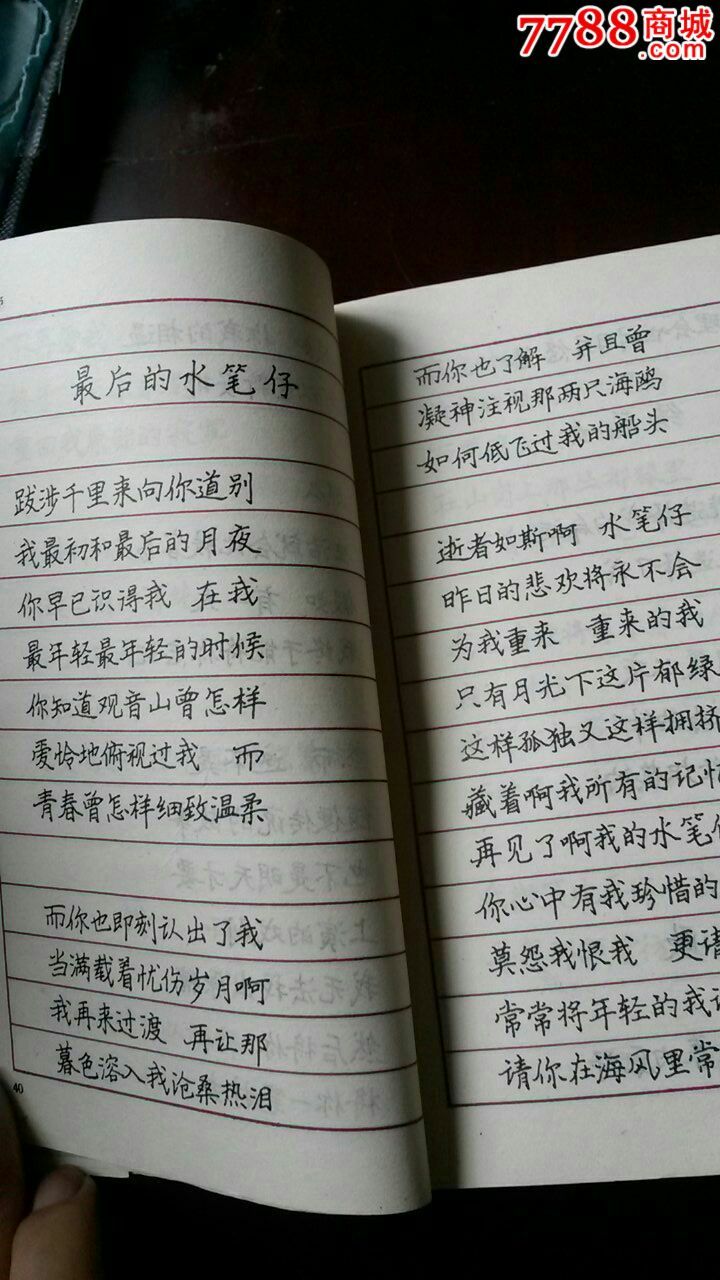 7788商城
.com
最后的水笔仔
跋涉千里来向你道别
我最初和最后的月夜
你早已识得我 在我
最年轻最年轻的时候
你知道观音山曾怎样
爱怜地俯视过我 而
青春曾怎样细致温柔
而你也即刻认出了我
当满载着忧伤岁月啊
我再来过渡 再让那
暮色溶入我沧桑热泪
40
而你也了解 并且曾
凝神注视那两只海鸥
如何低飞过我的船头
逝者如斯啊 水笔仔
昨日的悲欢将永不会
为我重来 重来的我
只有月光下这片郁绿
这样孤独又这样拥挤
藏着啊我所有的记忆
再见了啊我的水笔
你心中有我珍惜的
莫怨我恨我 更请
常常将年轻的我
请你在海风里常